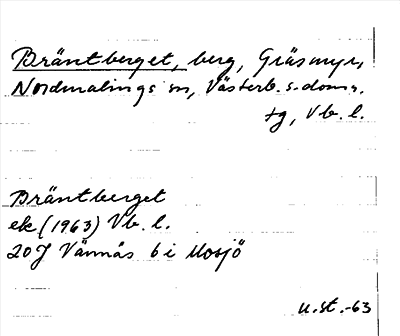 Bräntberget, berg, Gräsmyr,
Nordmalings sn, Västerb. s. doms.
tg, Vb. l.
Bräntberget
ek (1963) Vb. l.
20J Vännäs 6 i Mosjö
u.st.-63